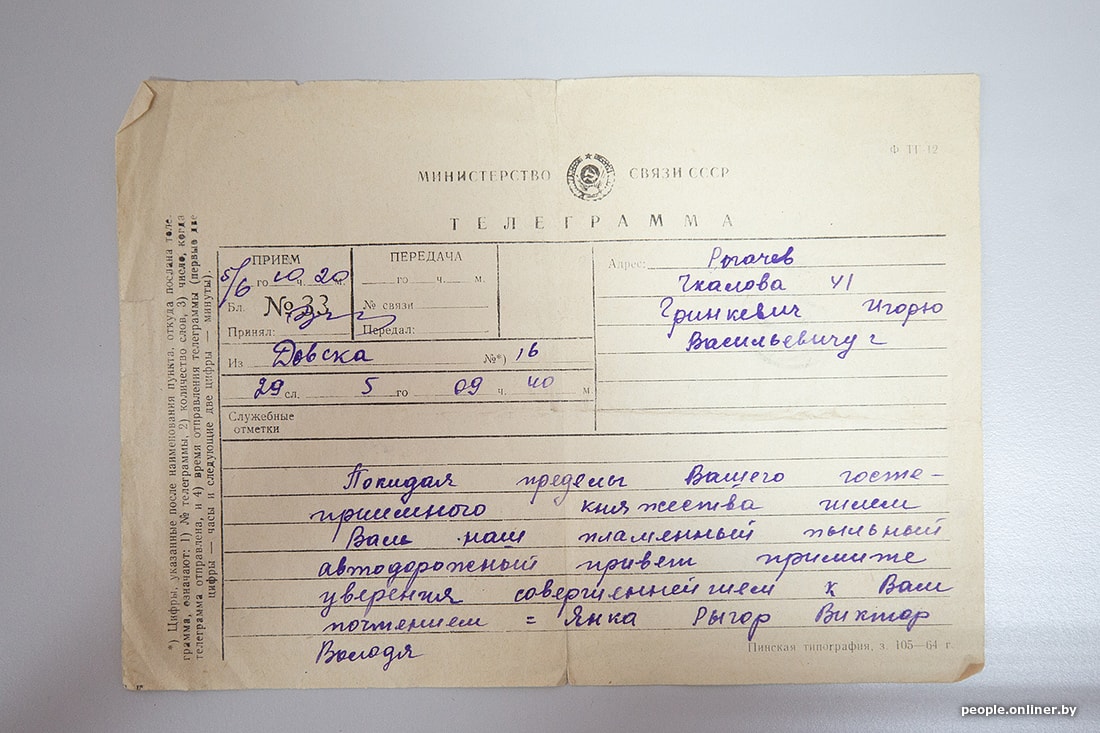 Ф ТГ 12
МИНИСТЕРСТВО СВЯЗИ СССР
ТЕЛЕГРАММА
ПРИЕМ
5/6 го 10 ч. 20 м.
Бл. № 33
Принял:
ПЕРЕДАЧА
го ч. м.
№ связи
Передал:
Из Довска №*) 16
29 сл. 5 го 09 ч. 40 м.
Служебные
отметки
Адрес: Рогачев
Чкалова 41
Гринкевич Игорю
Васильевичу г
Покидая пределы Вашего госте-
приимного княжества шлем
Вам наш пламенный пыльный
автодорожный привет примите
уверения совершеннейшем к Вам
почтением = Янка Рыгор Виктор
Володя
Пинская типография, з. 105—64 г.
*) Цифры, указанные после наименования пункта, откуда послана теле-
грамма, означают: 1) № телеграммы, 2) количество слов, 3) число, когда
телеграмма отправлена, и 4) время отправления телеграммы (первые две
цифры — часы и следующие две цифры — минуты).
people.onliner.by